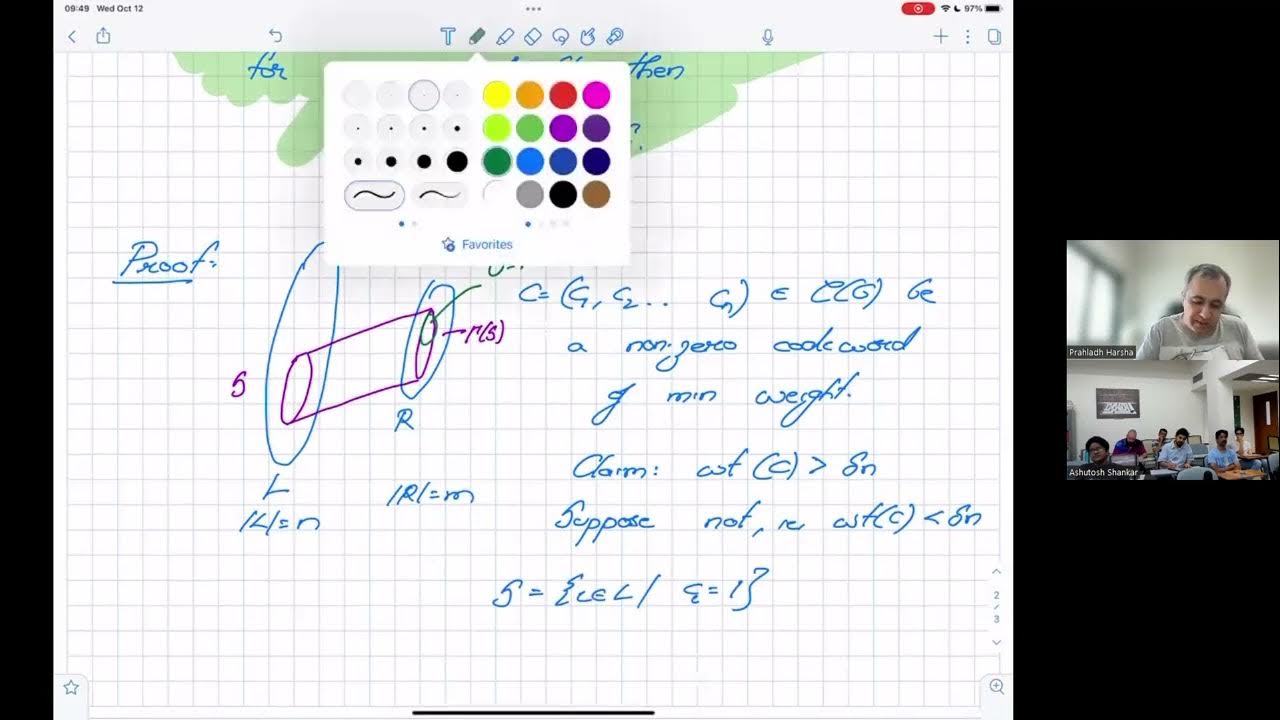 09:49 Wed Oct 12
97%
T
for then
Favorites
Proof:
C = (C₁, C₂ ... Cₙ) ∈ C(G) be
a non-zero codeword
of min weight.
S
Γ(S)
R
L
|L|=n
|R|=m
Claim: wt(C) > δn
Suppose not, ie wt(C) < δn
S = {i∈L | cᵢ = 1}
2
/
3
Prahladh Harsha
Ashutosh Shankar